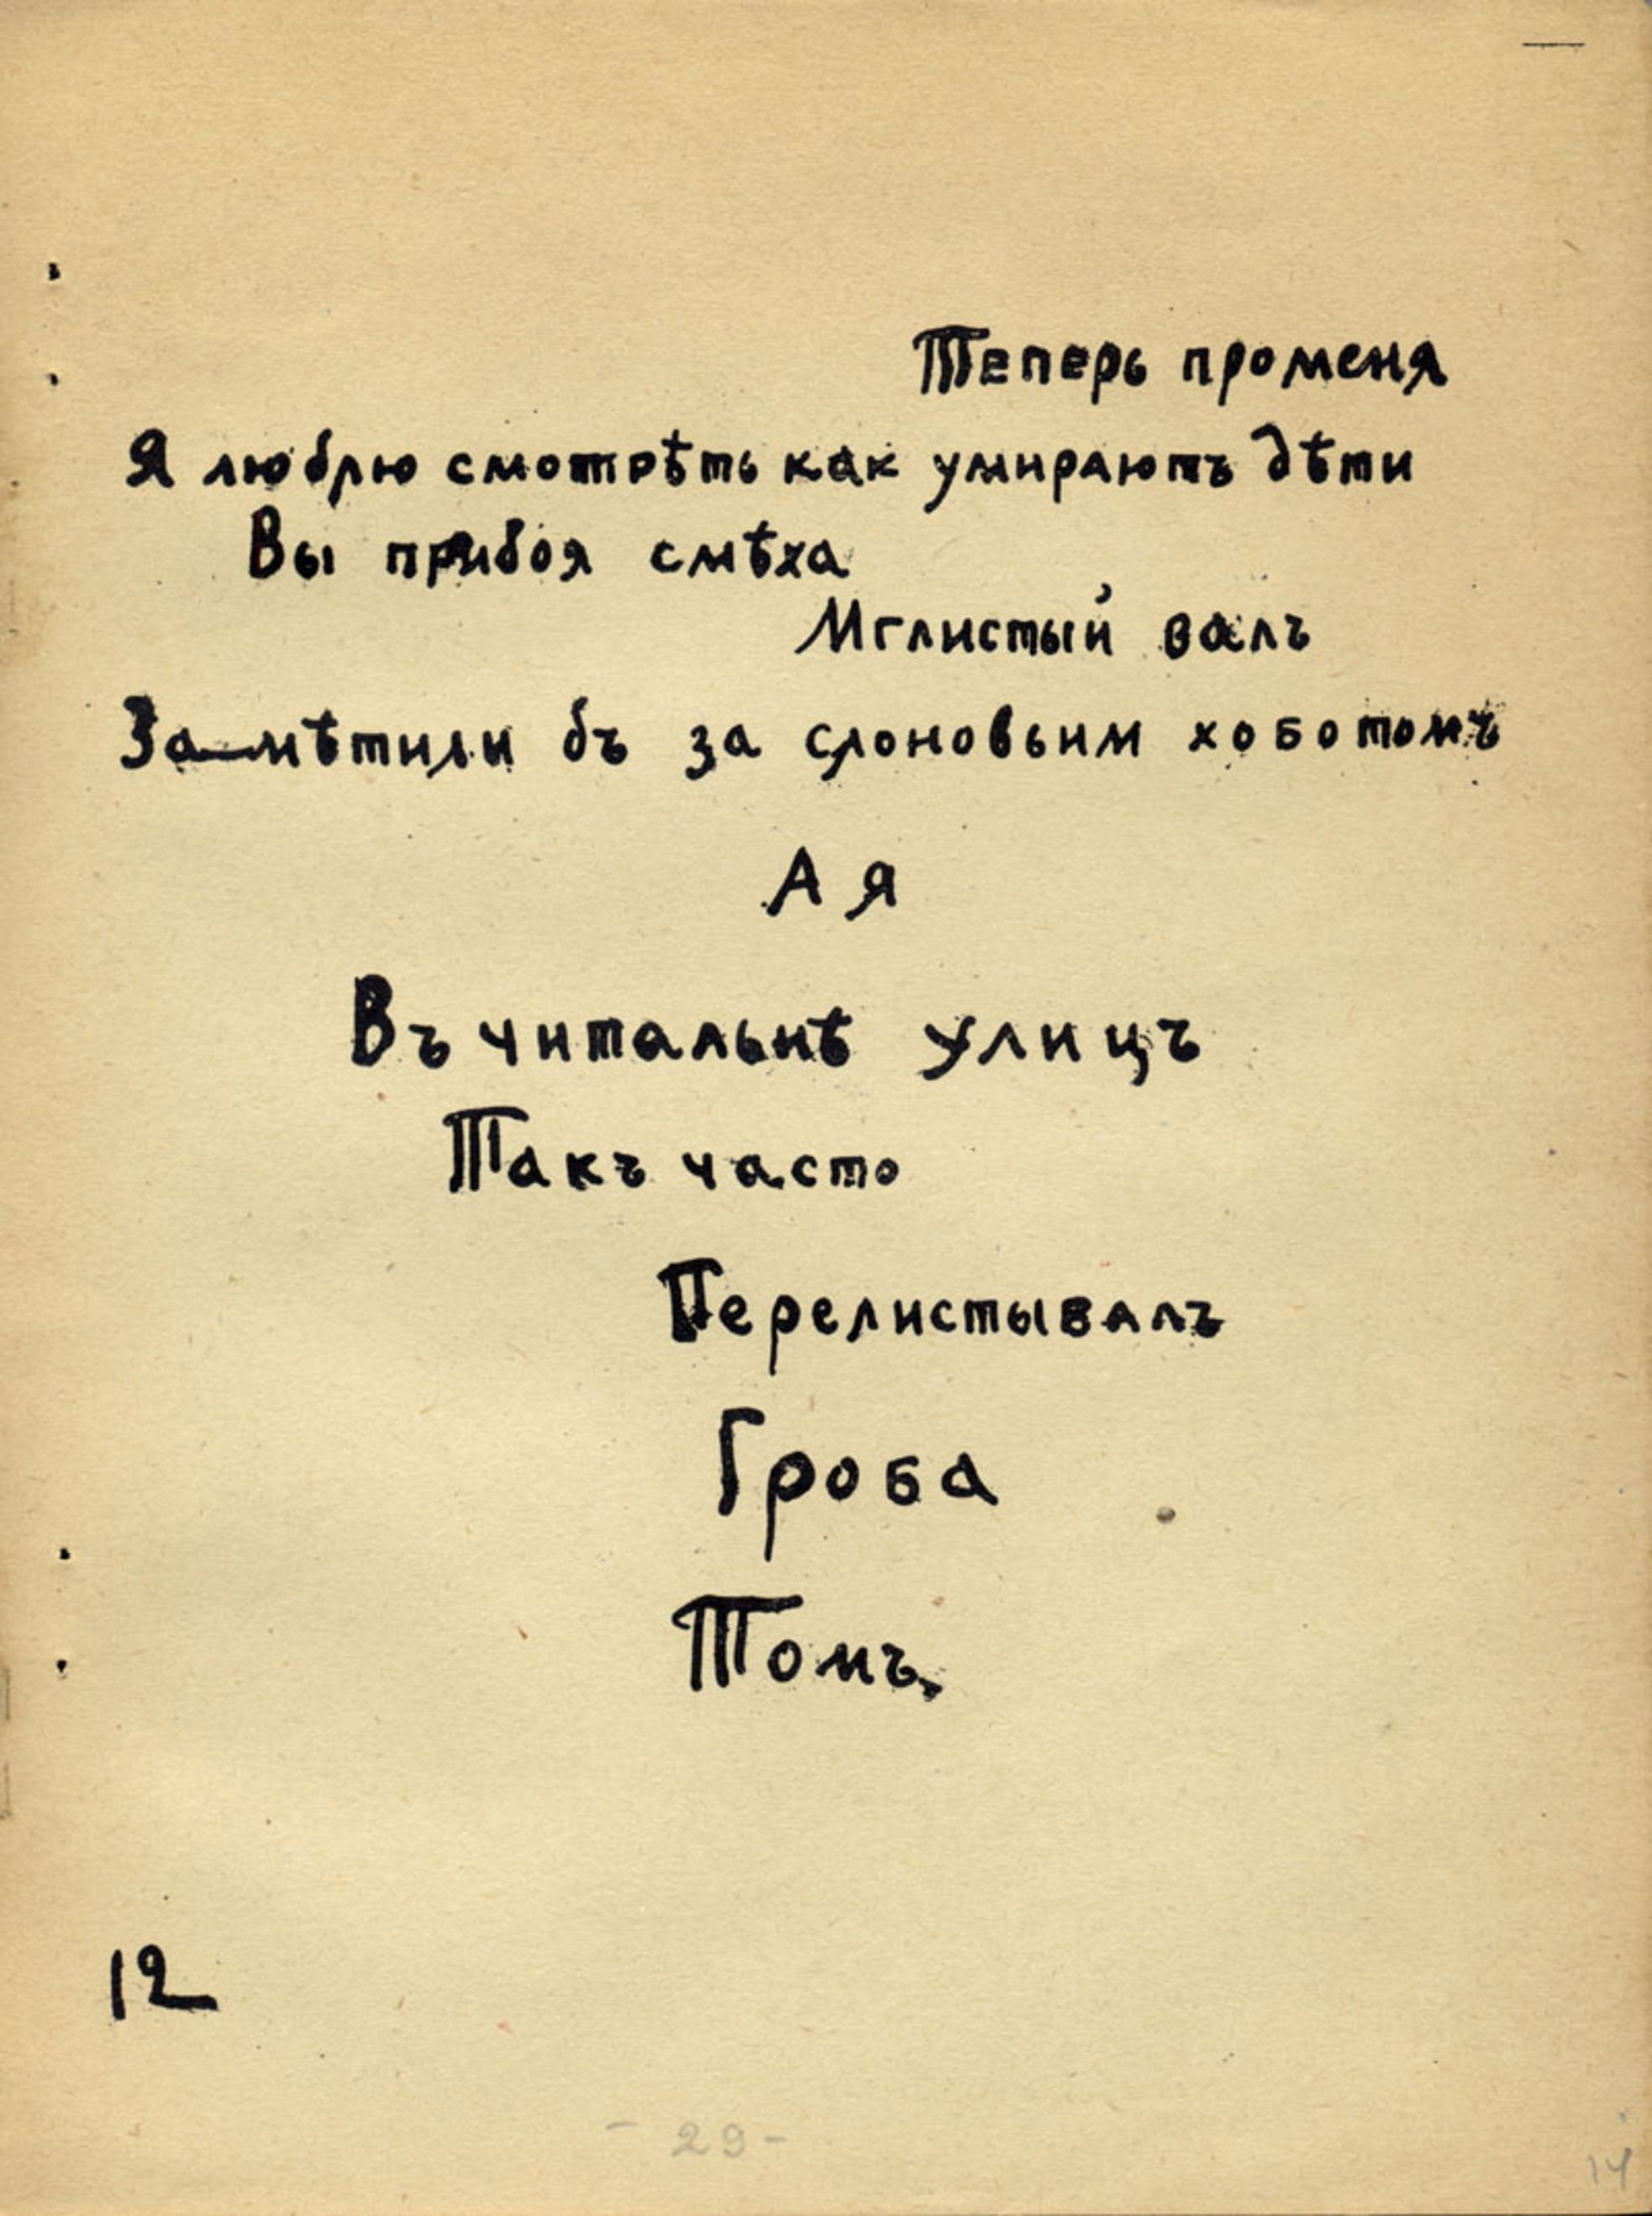 Теперь променя
Я люблю смотрѣть как умираютъ дѣти
Вы прибоя смѣха
Мглистый валъ
Замѣтили бъ за слоновьим хоботомъ
А я
Въ читальнѣ улицъ
Такъ часто
Перелистывалъ
Гроба
Томъ.
12
- 29 -
14